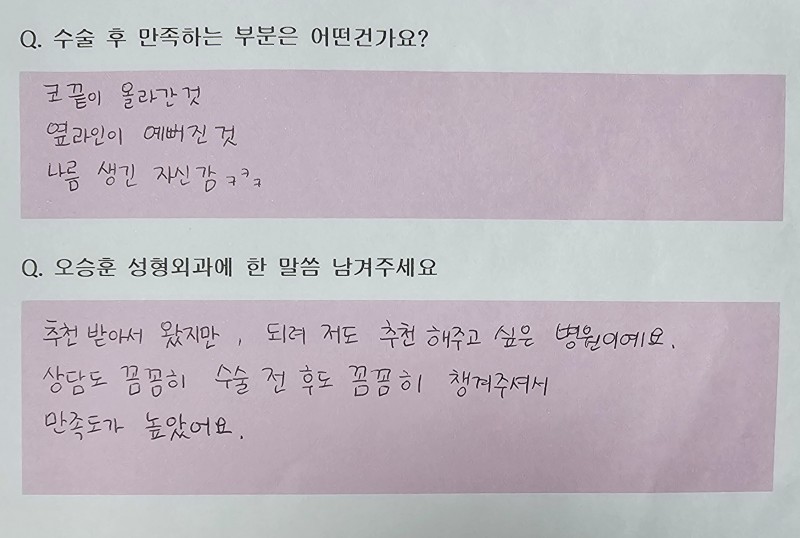 Q. 수술 후 만족하는 부분은 어떤건가요?
코끝이 올라간것
옆라인이 예뻐진것
나름 생긴 자신감 ㅋㅋㅋ
Q. 오승훈 성형외과에 한 말씀 남겨주세요
추천 받아서 왔지만, 되려 저도 추천 해주고 싶은 병원이예요.
상담도 꼼꼼히 수술 전 후도 꼼꼼히 챙겨주셔서
만족도가 높았어요.